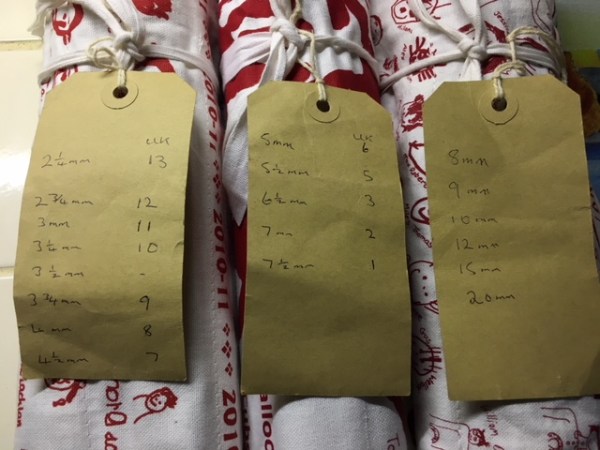 UK
2 1/4 mm 13
2 3/4 mm 12
3mm 11
3 1/4 mm 10
3 1/2 mm -
3 3/4 mm 9
4 mm 8
4 1/2 mm 7
UK
5mm 6
5 1/2 mm 5
6 1/2 mm 3
7 mm 2
7 1/2 mm 1
8mm
9mm
10mm
12mm
15mm
20mm
2010-11
2010-11
2010